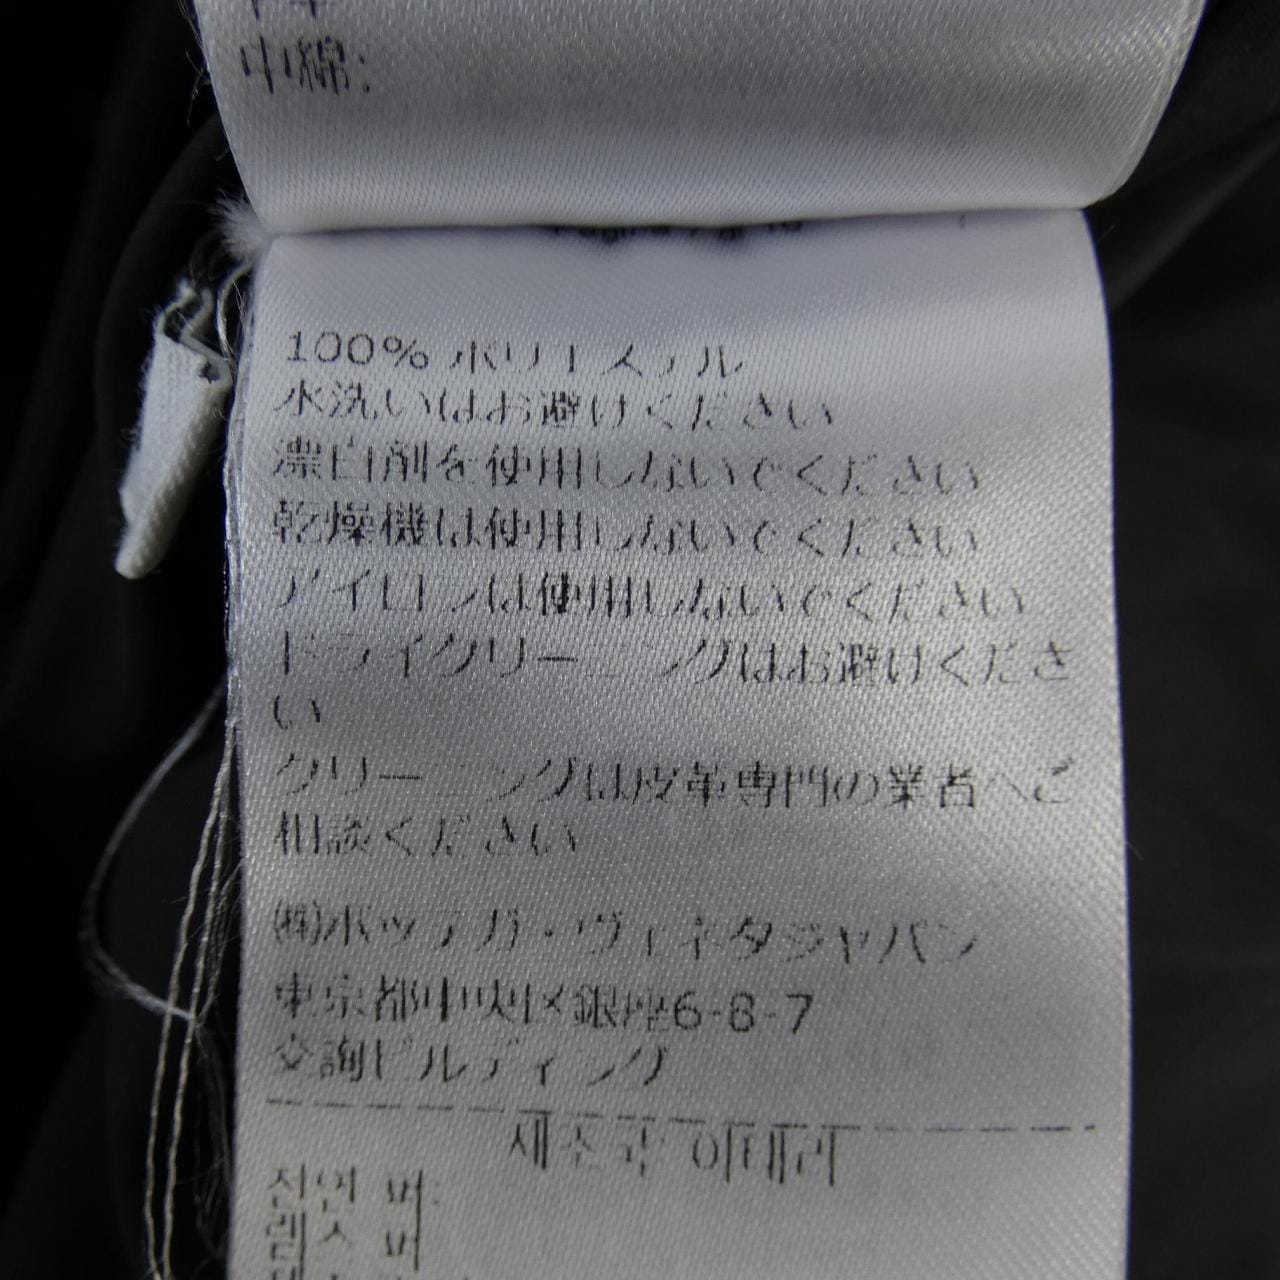 中綿:
100% ポリエステル
水洗いはお避けください
漂白剤を使用しないでください
乾燥機は使用しないでください
アイロンは使用しないでください
ドライクリーニングはお避けくださ
い
クリーニングは皮革専門の業者へご
相談ください
㈱ボッテガ・ヴェネタジャパン
東京都中央区銀座6-8-7
交詢ビルディング
제조국 이태리
천연 퍼:
램스 퍼